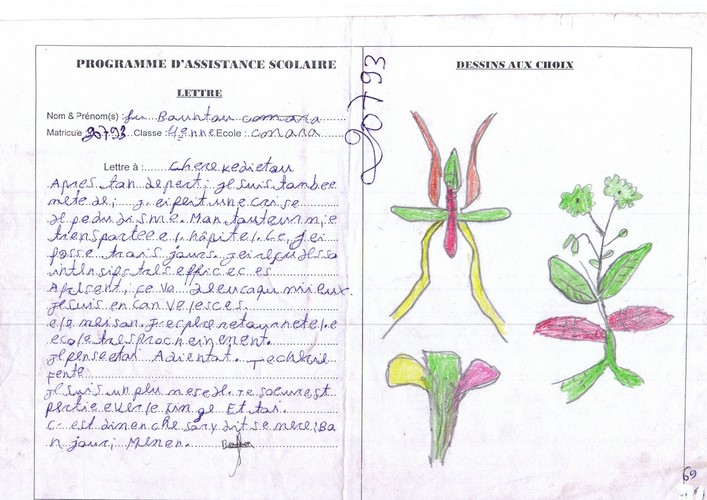 PROGRAMME D'ASSISTANCE SCOLAIRE
LETTRE
Nom & Prénom(s) : Bountou camara
Matricule 20793 Classe : 4enne Ecole : camara
Lettre à : chere kedietou
Apres tan depert; Je suis tambee
melede; J. ei pert une crise
de pedu disme. Man tauteur mie
transpartee e l. hâpitel. Ce, J ei
passe trais jours. J ei reçu des so
intensifs tres efficeces
Apresent; çe ve
Je suis en canvelesces.
e le meisan. J espere retaurnete l. e
ecole tres procheinement.
Je pense e tai Adientat. Techerie
Fente
Je suis un plu me seure est
pertie e ver le linge Et tai.
C. est dimenche sory dit se mere; Ba
n jour; Memen.
20793
DESSINS AUX CHOIX
69